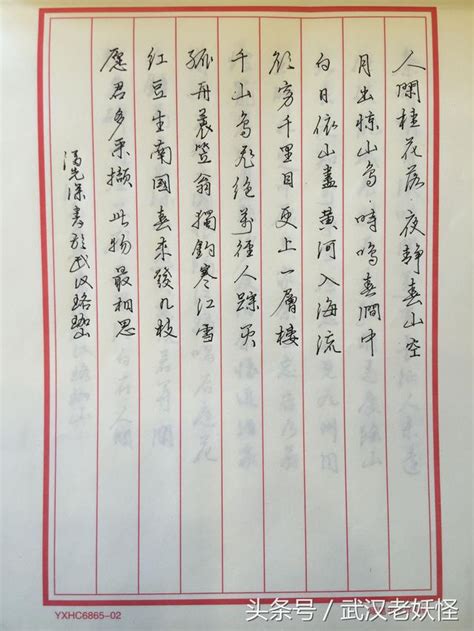 人閒桂花落·夜靜春山空
月出惊山鸟·時鳴春澗中
白日依山盡 黄河入海流
欲穷千里目 更上一層楼
千山鸟飛绝 萬径人踪灭
孤舟蓑笠翁 獨钓寒江雪
红豆生南國 春來發几枝
愿君多采撷 此物最相思
书於武汉珞珈山
YXHC6865-02
头条号 / 武汉老妖怪